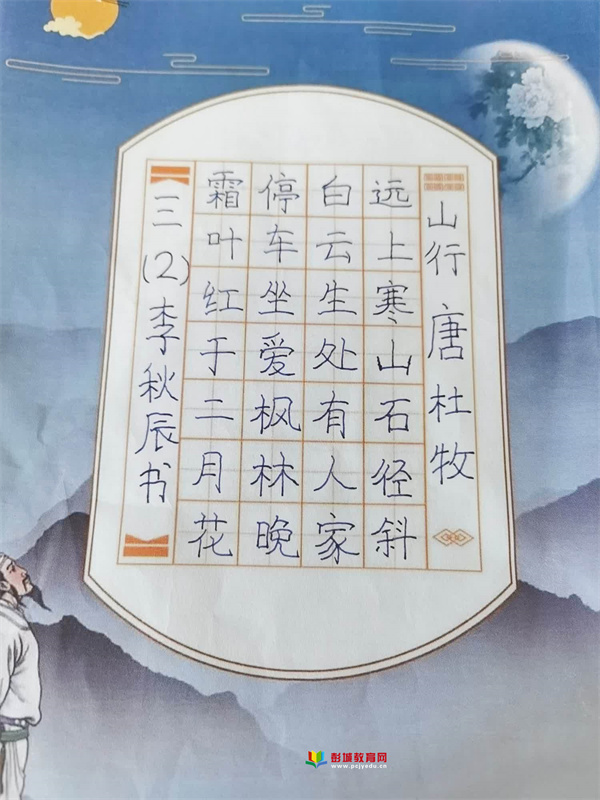 山行 唐 杜牧
远上寒山石径斜
白云生处有人家
停车坐爱枫林晚
霜叶红于二月花
三(2)李秋辰书
彭城教育网
www.pcjyedu.cn